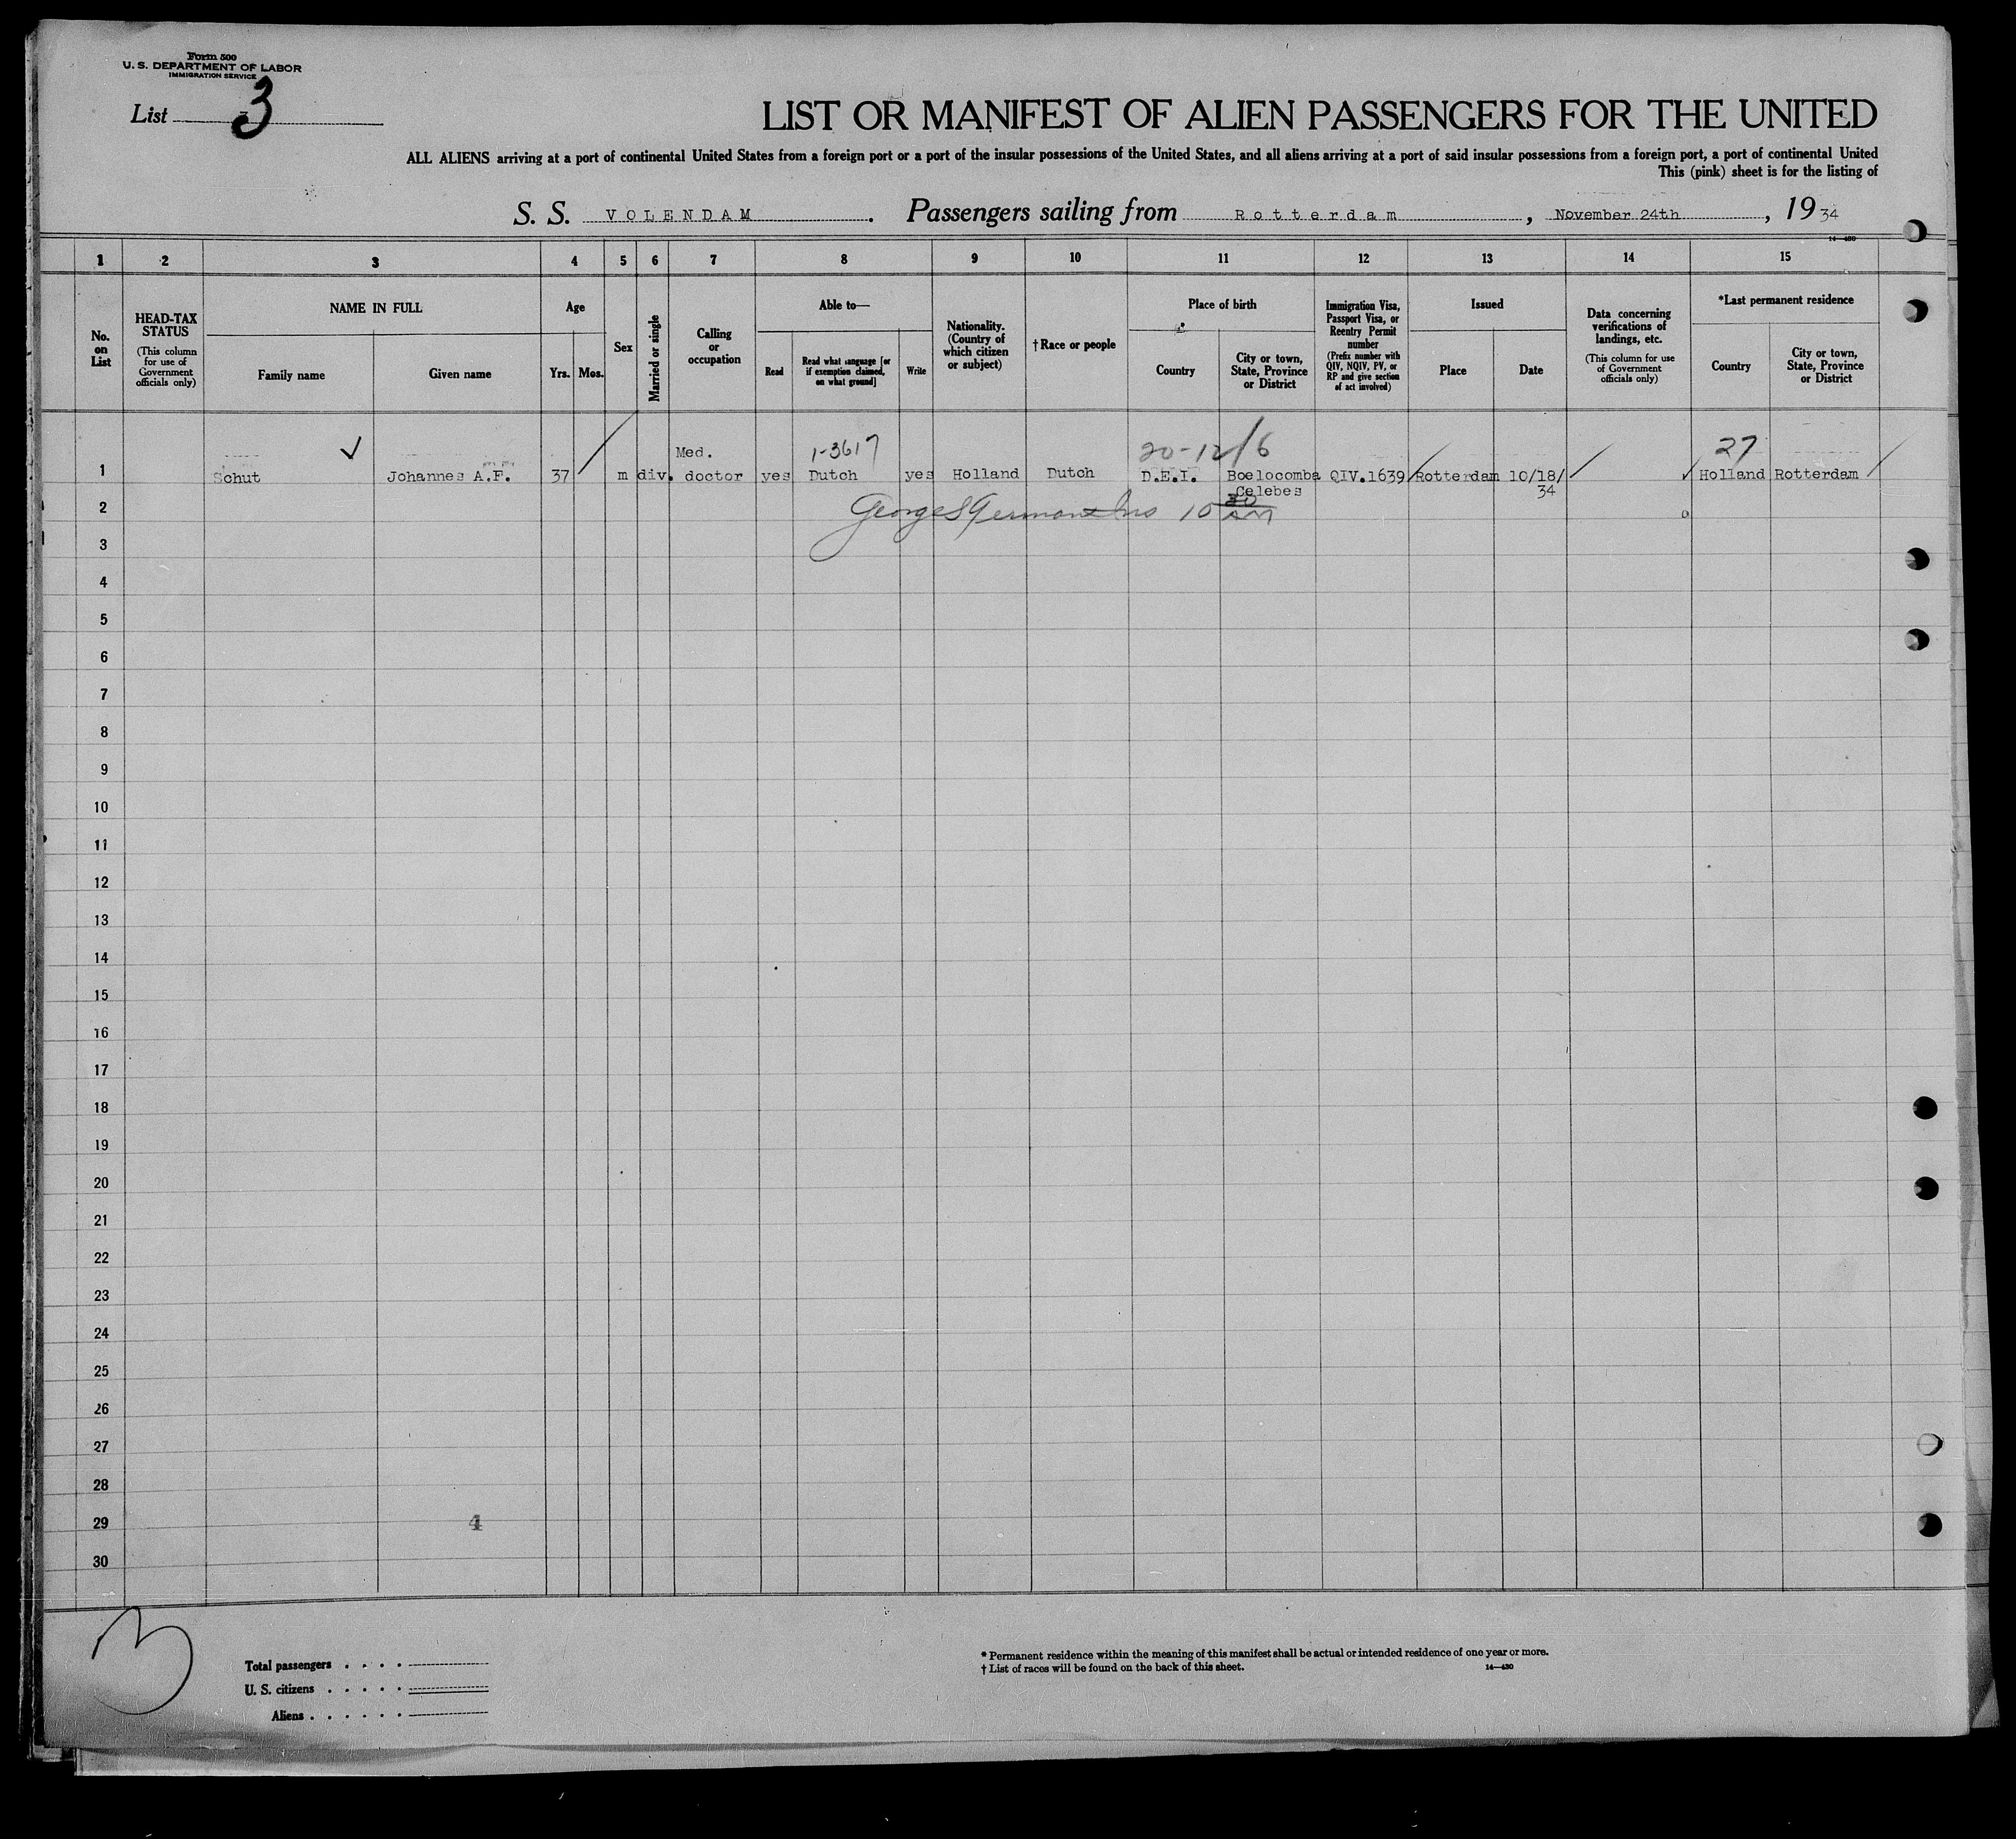 Form 500
U. S. DEPARTMENT OF LABOR
IMMIGRATION SERVICE
List 3
LIST OR MANIFEST OF ALIEN PASSENGERS FOR THE UNITED
ALL ALIENS arriving at a port of continental United States from a foreign port or a port of the insular possessions of the United States, and all aliens arriving at a port of said insular possessions from a foreign port, a port of continental United
This (pink) sheet is for the listing of
S. S. VOLENDAM. Passengers sailing from Rotterdam, November 24th, 1934
14—430
1 2 3 4 5 6 7 8 9 10 11 12 13 14 15
No. on List
HEAD-TAX STATUS
(This column for use of Government officials only)
NAME IN FULL
Family name
Given name
Age
Yrs. Mos.
Sex
Married or single
Calling or occupation
Able to—
Read
Read what language [or if exemption claimed, on what ground]
Write
Nationality. (Country of which citizen or subject)
†Race or people
Place of birth
Country
City or town, State, Province or District
Immigration Visa, Passport Visa, or Reentry Permit number
(Prefix number with QIV, NQIV, PV, or RP and give section of act involved)
Issued
Place
Date
Data concerning verifications of landings, etc.
(This column for use of Government officials only)
*Last permanent residence
Country
City or town, State, Province or District
Med. 1-3617 20-12/6 27
1 Schut Johannes A.F. 37 m div. doctor yes Dutch yes Holland Dutch D.E.I. Boelocomba QIV.1639 Rotterdam 10/18/ Holland Rotterdam
Celebes 34
2 George 10
3
4
5
6
7
8
9
10
11
12
13
14
15
16
17
18
19
20
21
22
23
24
25
26
27
28
29 4
30
3
Total passengers
U. S. citizens
Aliens
* Permanent residence within the meaning of this manifest shall be actual or intended residence of one year or more.
† List of races will be found on the back of this sheet. 14—430